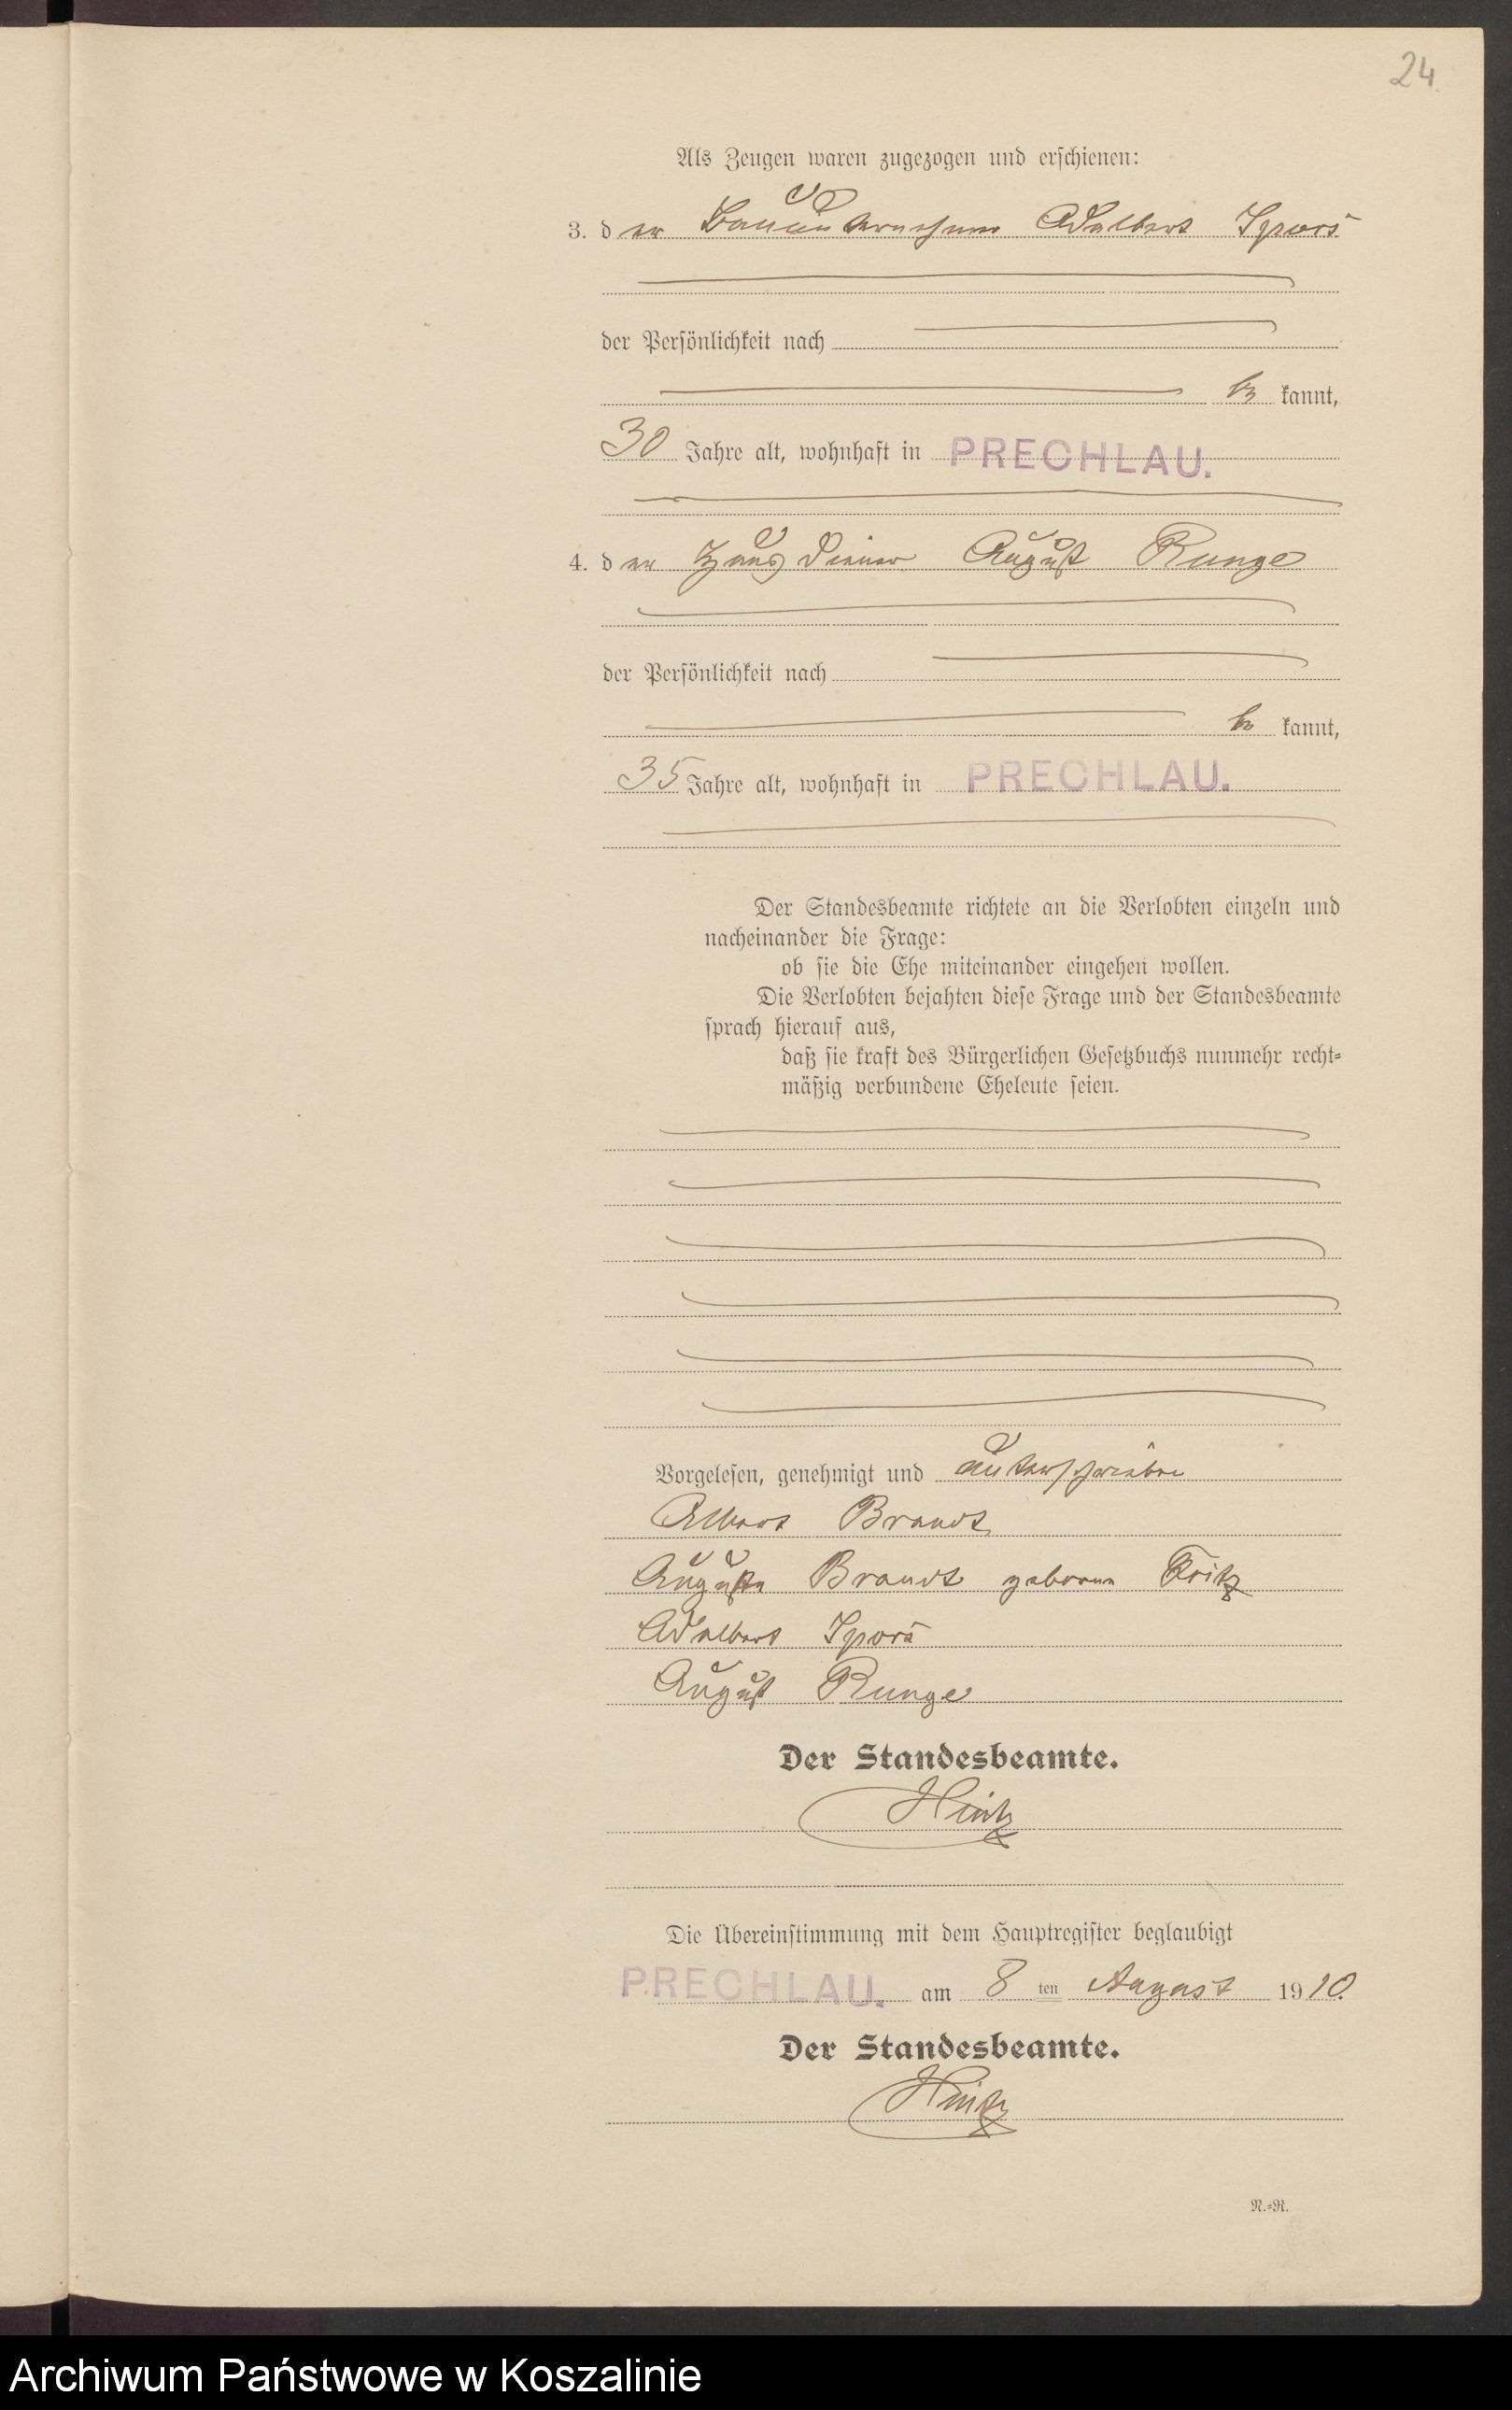 24.
Als Zeugen waren zugezogen und erschienen:
3. der Bauunternehmer Adalbert Spors
der Persönlichkeit nach
be kannt,
30 Jahre alt, wohnhaft in PRECHLAU.
4. der Hausdiener August Runge
der Persönlichkeit nach
be kannt,
35 Jahre alt, wohnhaft in PRECHLAU.
Der Standesbeamte richtete an die Verlobten einzeln und
nacheinander die Frage:
ob sie die Ehe miteinander eingehen wollen.
Die Verlobten bejahten diese Frage und der Standesbeamte
sprach hierauf aus,
daß sie kraft des Bürgerlichen Gesetzbuchs nunmehr recht-
mäßig verbundene Eheleute seien.
Vorgelesen, genehmigt und unterschrieben
Albert Brandt
Auguste Brandt geborene Fritz
Adalbert Spors
August Runge
Der Standesbeamte.
Hintz
Die Übereinstimmung mit dem Hauptregister beglaubigt
PRECHLAU. am 8 ten August 1910.
Der Standesbeamte.
Hintz
N.-R.
Archiwum Państwowe w Koszalinie